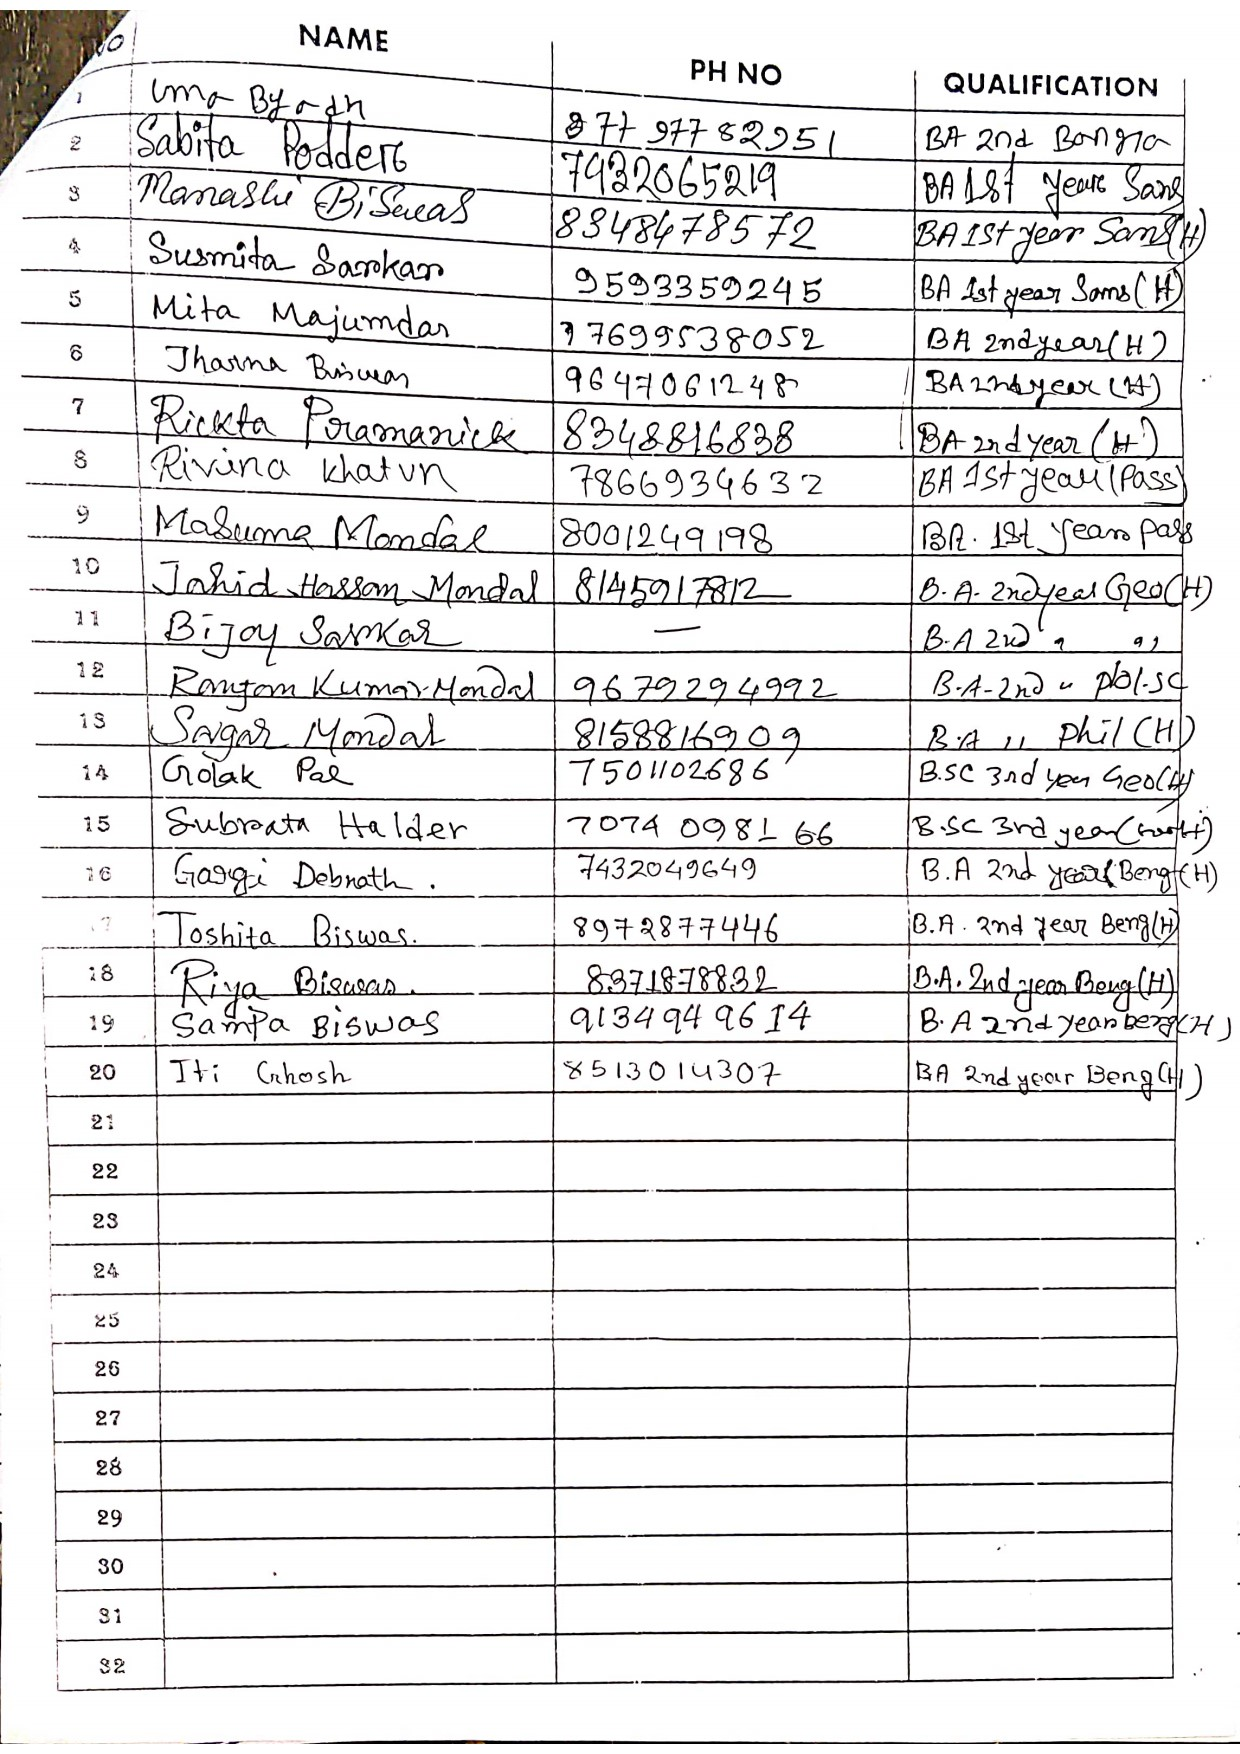 NO NAME PH NO QUALIFICATION
1 Uma 87797782951 BA 2nd Bangla
2 Sabita Podder 7432065219 BA 1st year Sans
3 Manashi Biswas 8348478572 BA 1st year Sans(H)
4 Susmita Sarkar 9593359245 BA 1st year Sans(H)
5 Mita Majumdar 7699538052 BA 2nd year(H)
6 Jharna Biswas 9647061248 BA 2nd year (H)
7 Rickta Pramanick 8348816838 BA 2nd year (H)
8 Rivina Khatun 7866934632 BA 1st year (Pass)
9 Masuma Mondal 8001249198 BA. 1st year pass
10 Jahid Hassan Mondal 8145917812 B.A. 2nd year Geo(H)
11 Bijoy Sarkar — B.A 2nd " "
12 Ranjan Kumar Mondal 9679294992 B.A-2nd " pol.sc
13 Sagar Mondal 8158816909 B.A " phil(H)
14 Golak Pal 7501102686 B.SC 3rd year Geo(H)
15 Subrata Halder 7074 0981 66 B.SC 3rd year
16 Gargi Debnath. 7432049649 B.A 2nd year Beng(H)
17 Toshita Biswas. 8972877446 B.A. 2nd year Beng(H)
18 Riya Biswas. 8371878832 B.A. 2nd year Beng(H)
19 Sampa Biswas 9134949614 B.A 2nd year Beng(H)
20 Iti Ghosh 8513014307 BA 2nd year Beng(H)
21
22
23
24
25
26
27
28
29
30
31
32